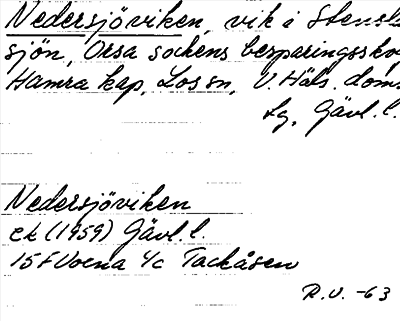 Nedersjöviken, vik i Stensl
sjön, Orsa sockens besparingssko
Hamra kap, Los sn, V. Häls. doms
Lg, Gävl. l.
Nedersjöviken
ek (1959) Gävl. l.
15F Voxna 4c Tackåsen
R.V. -63